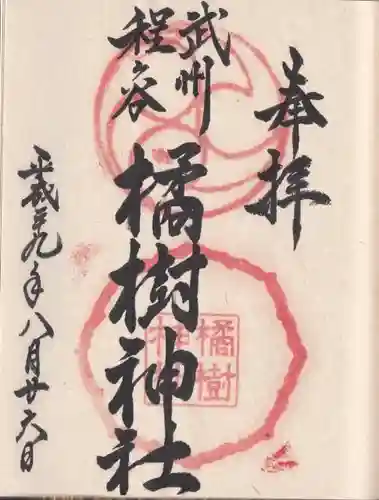 奉拝
武州
程谷
橘樹神社
橘樹
神社
平成廿九年八月廿六日